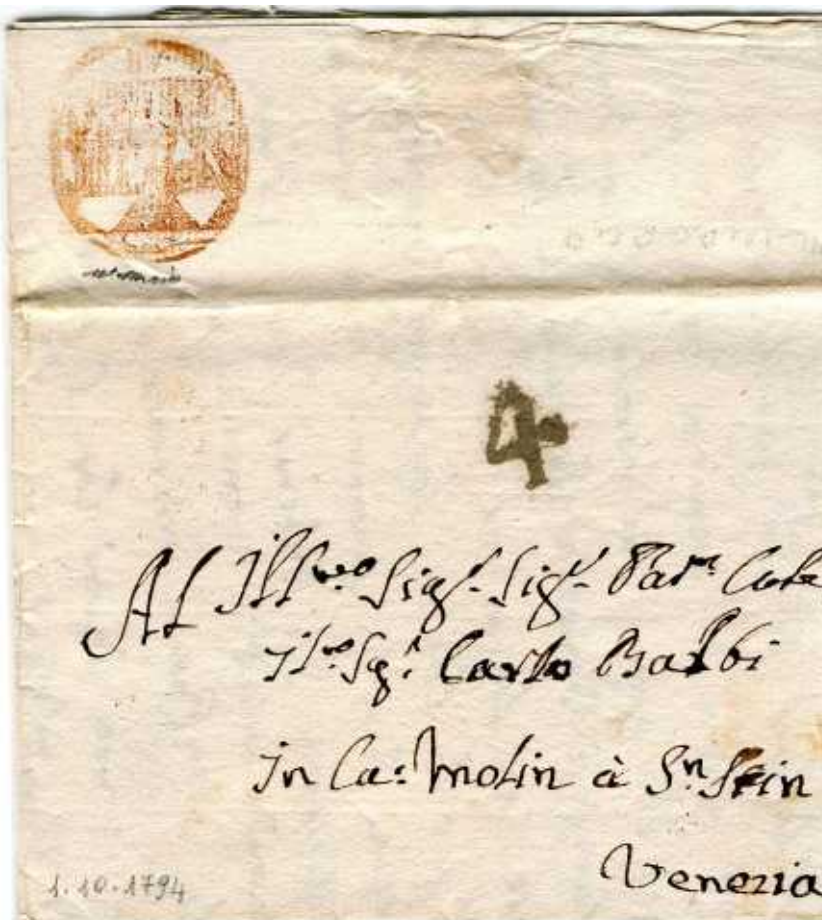 4
Al Ill.mo Sig.r Sig.r Pa.r
Ill.mo Sg.r Carlo Balbi
in Ca: Molin à S.n Stin
Venezia
1.10.1794